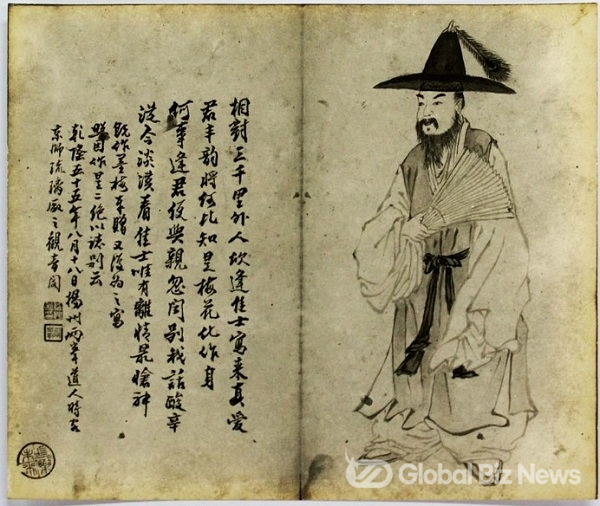 相對三千里外人欣逢佳士寫來真愛
君丰韻將何比知是梅花化作身
何事逢君便與親忽聞別我話酸辛
從今淡漠看佳士惟有離情最愴神
既作墨梅奉贈又復為之寫
照因作是二絕以誌別云
乾隆五十五年八月十八日揚州兩峯道人時客
京師琉璃厰之觀音閣
Global Biz News